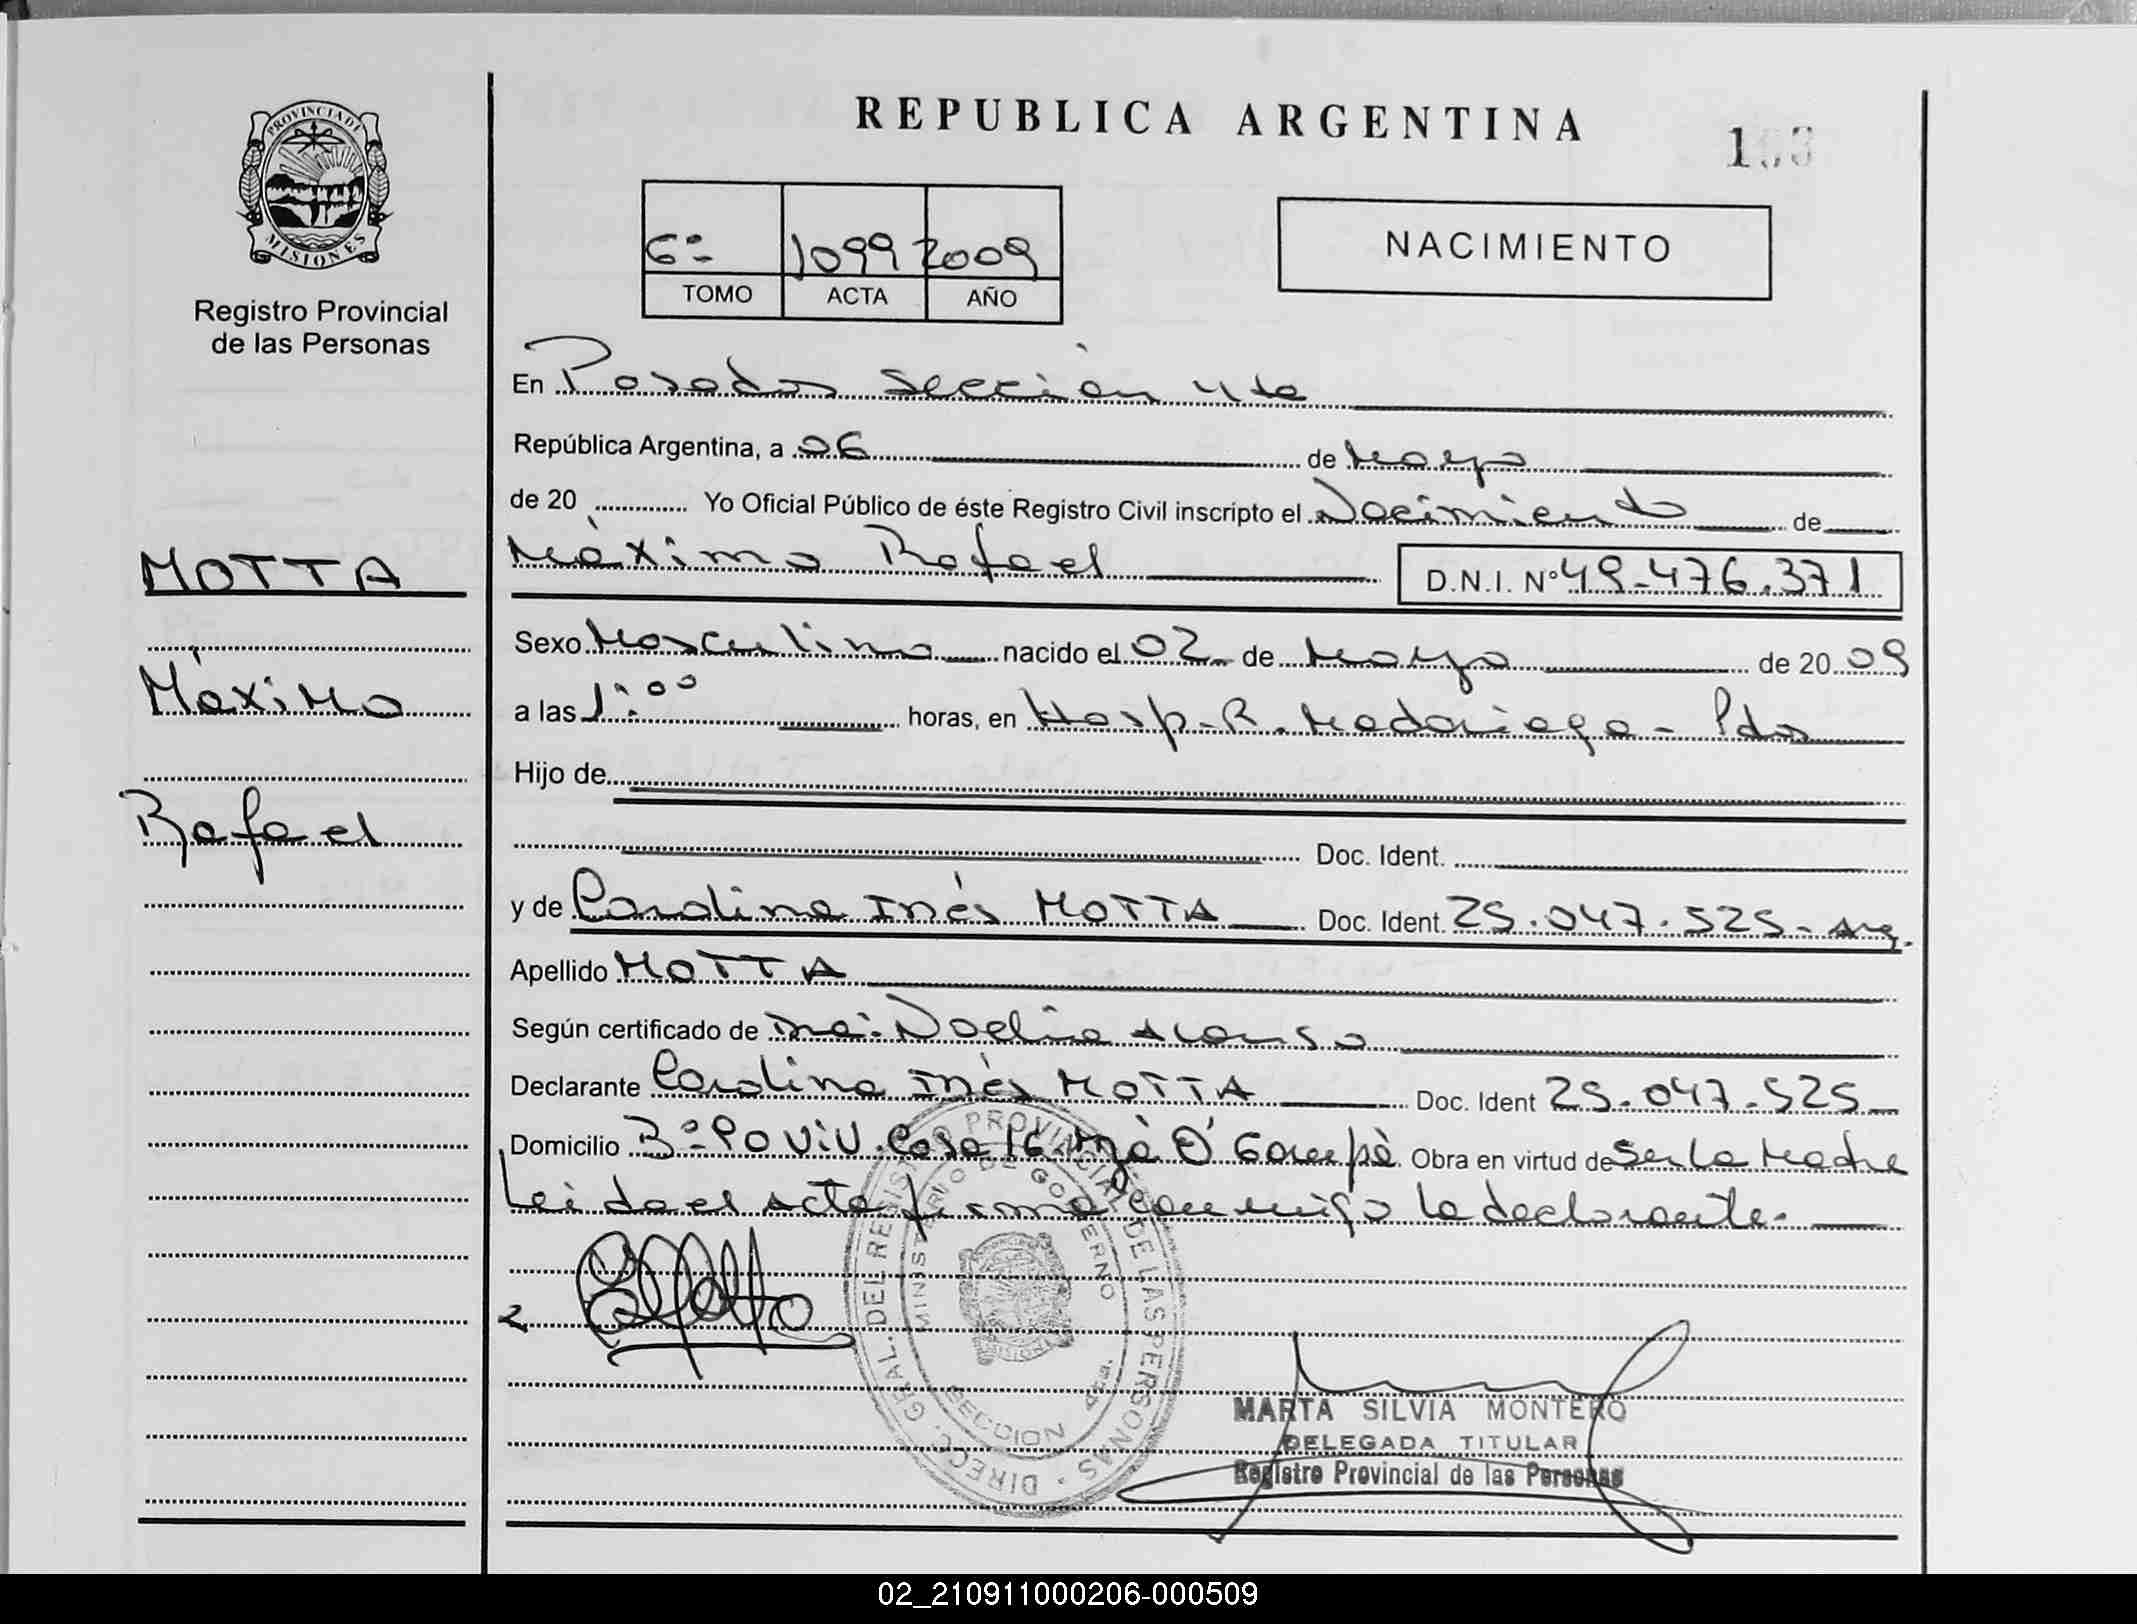 REPUBLICA ARGENTINA
PROVINCIA DE
MISIONES
Registro Provincial
de las Personas
6º- 1099 2009
TOMO ACTA AÑO
NACIMIENTO
En Posadas Sección 4ta
República Argentina, a 06 de Mayo
de 20 Yo Oficial Público de éste Registro Civil inscripto el Nacimiento de
Máximo Rafael D.N.I. Nº 49.476.371
MOTTA
Máximo
Rafael
Sexo Masculino nacido el 02 de Mayo de 20 09
a las 1:00 horas, en Hosp. R. Madariaga - Pdas
Hijo de
Doc. Ident.
y de Carolina Inés MOTTA Doc. Ident. 25.047.525 - Arg.
Apellido MOTTA
Según certificado de Noelia Alonso
Declarante Carolina Inés MOTTA Doc. Ident 25.047.525
Domicilio Bº Casa 16 Obra en virtud de Ser la Madre
Leida el acta firma conmigo la declarante.
DIRECC. GRAL. DEL REGISTRO PROVINCIAL DE LAS PERSONAS
MINISTERIO DE GOBIERNO
SECCION 4ta.
MARTA SILVIA MONTERO
DELEGADA TITULAR
Registro Provincial de las Personas
02_210911000206-000509